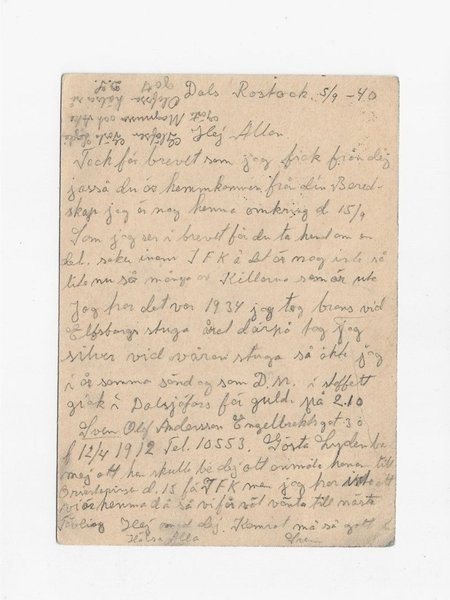 Dals Rostock. 5/9 -40
Hej Allan
Tack för brevet som jag fick från dig
jasså du är hemmkommen från din Bered-
skap jag är nog hemma omkring d 15/9
Som jag ser i brevet får du ta hand om en
del saker inom IFK ä det är nog inte så
nu så många av Killarna som är ute
Jag har det var 1934 jag tog brons vid
Elfsborgs stuga året därpå tog jag
silver vid våran stuga så gick jag
i år samma söndag som D.M. i stafett
gick i Dalsjöfors för guld. på 2.10
Sven Olof Andersson Engelbrektsgat 3 ö
f 12/4 1912 Tel. 10553. Gösta Lyden be
mej att han skulle be dej att anmäla honom till
d. 15 få IFK men jag har
hemma då så vi får väl vänta till nästa
Tävling Hej med dej. Kamrat må så gott
Hälsa Alla
Sven